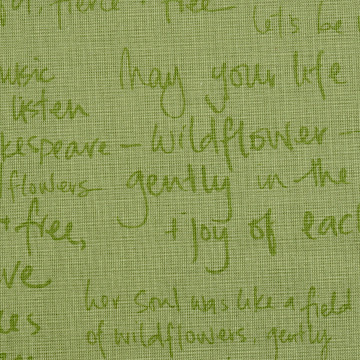 fierce + free
let's be
music
May your life
listen
kespeare - wildflower -
flowers
gently in the
+ free,
+ joy of each
ve
her soul was like a field
of wildflowers, gently